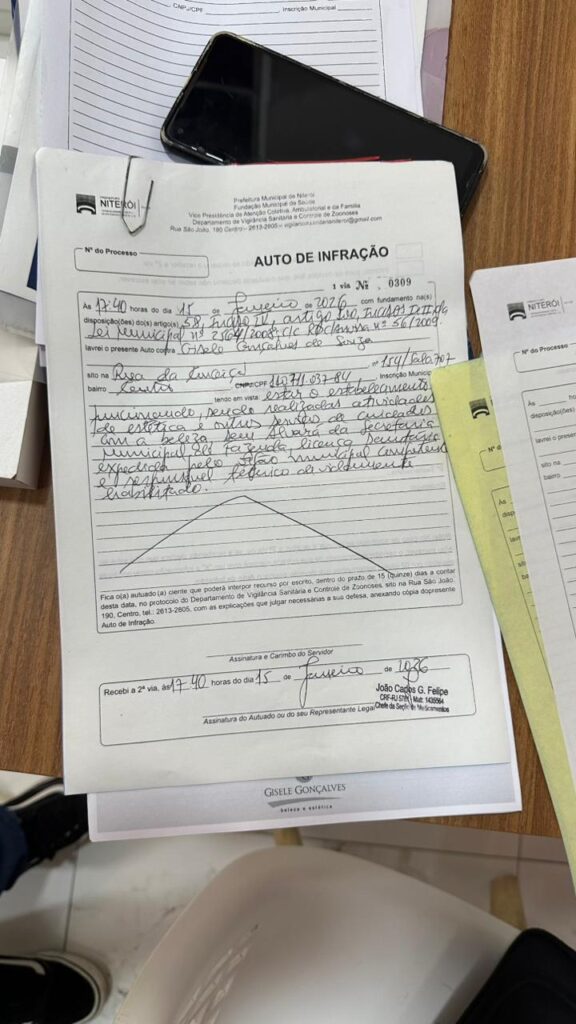 CNPJ/CPF
Inscrição Municipal
NITERÓI
Prefeitura Municipal de Niterói
Fundação Municipal de Saúde
Vice Presidência de Atenção Coletiva, Ambulatorial e da Família
Departamento de Vigilância Sanitária e Controle de Zoonoses
Rua São João, 190 Centro - 2613-2805
Nº do Processo
AUTO DE INFRAÇÃO
1 via Nº 0309
Às 17:40 horas do dia 15 de Janeiro de 2026 com fundamento na(s)
disposição(ões) do(s) artigo(s) 58, inciso IV, artigo
Lei Municipal nº 2564/2008, c/c nº 56/2009.
lavrei o presente Auto contra Gisele Gonçalves de Souza
sito na Rua da Conceição nº 154/Sala 707
bairro Centro CNPJ/CPF Inscrição Municipal
tendo em vista: estar o estabelecimento
funcionando, sendo realizadas atividades
de estética e outros serviços de cuidados
com a beleza, sem Alvará da Secretaria
Municipal de Fazenda, licença sanitária
expedida pelo órgão municipal competente
e responsável técnico devidamente
habilitado.
Fica o(a) autuado(a) ciente que poderá interpor recurso por escrito, dentro do prazo de 15 (quinze) dias a contar
desta data, no protocolo do Departamento de Vigilância Sanitária e Controle de Zoonoses, sito na Rua São João,
190, Centro, tel.: 2613-2805, com as explicações que julgar necessárias a sua defesa, anexando cópia dopresente
Auto de Infração.
Assinatura e Carimbo do Servidor
Recebi a 2ª via, às 17:40 horas do dia 15 de Janeiro de 2026
João Carlos G. Felipe
Chefe da Seção de Medicamentos
Assinatura do Autuado ou do seu Representante Legal
GISELE GONÇALVES
beleza e estética
NITERÓI
Nº do Processo
Às
disposição(ões
lavrei o present
sito na
bairro